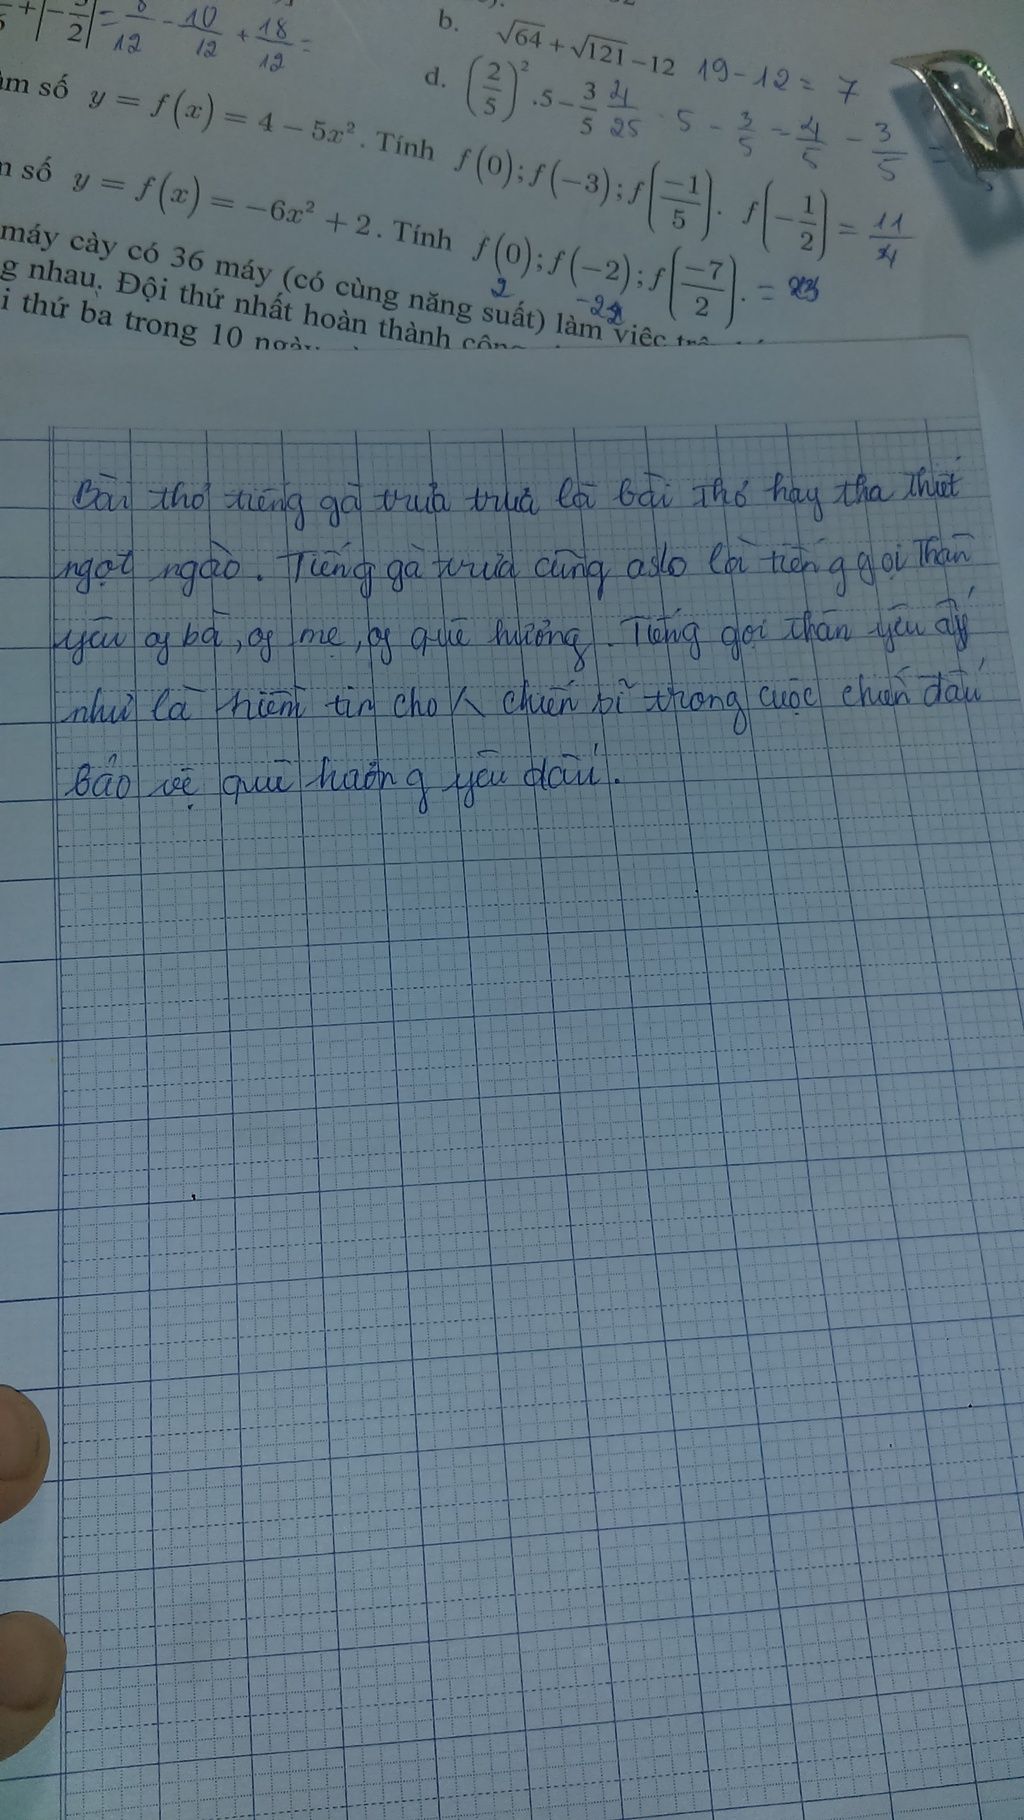 + |−3/2| = 8/12 − 10/12 + 18/12 =
b. √64 + √121 − 12 19 − 12 = 7
d. (2/5)² .5 − 3/5 4/25 . 5 − 3/5 = 4/5 − 3/5 =
àm số y = f(x) = 4 − 5x². Tính f(0); f(−3); f(−1/5). f(−1/2) = 11/4
m số y = f(x) = −6x² + 2. Tính f(0); f(−2); f(−7/2). =
2 −22
máy cày có 36 máy (có cùng năng suất) làm việc
g nhau. Đội thứ nhất hoàn thành
i thứ ba trong 10
Bài thơ tiếng gà trưa là bài thơ hay tha thiết
ngọt ngào. Tiếng gà trưa cũng là tiếng gọi thân
yêu of bà, of mẹ, of quê hương. Tiếng gọi thân yêu ấy
như là niềm tin cho chiến sĩ trong cuộc chiến đấu
bảo vệ quê hương yêu dấu.